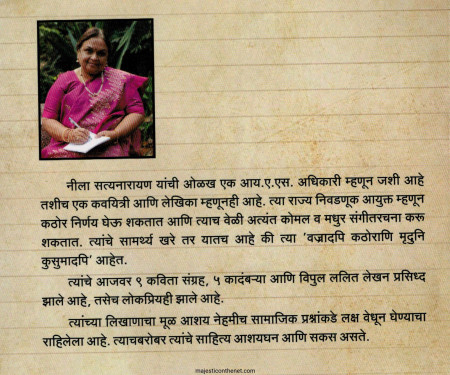 नीला सत्यनारायण यांची ओळख एक आय.ए.एस. अधिकारी म्हणून जशी आहे
तशीच एक कवयित्री आणि लेखिका म्हणूनही आहे. त्या राज्य निवडणूक आयुक्त म्हणून
कठोर निर्णय घेऊ शकतात आणि त्याच वेळी अत्यंत कोमल व मधुर संगीतरचना करू
शकतात. त्यांचे सामर्थ्य खरे तर यातच आहे की त्या 'वज्रादपि कठोराणि मृदुनि
कुसुमादपि' आहेत.
त्यांचे आजवर ९ कविता संग्रह, ५ कादंबऱ्या आणि विपुल ललित लेखन प्रसिध्द
झाले आहे, तसेच लोकप्रियही झाले आहे.
त्यांच्या लिखाणाचा मूळ आशय नेहमीच सामाजिक प्रश्नांकडे लक्ष वेधून घेण्याचा
राहिलेला आहे. त्याचबरोबर त्यांचे साहित्य आशयघन आणि सकस असते.
majesticonthenet.com